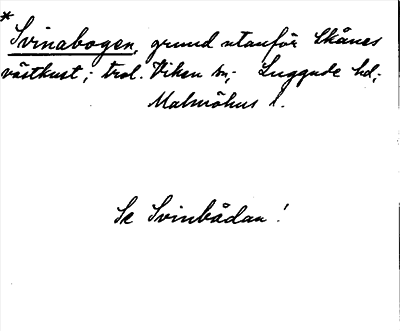 * Svinabogen, grund utanför Skånes
västkust; trol. Viken sn; Luggude hd;
Malmöhus l.
Se Svinbådan!